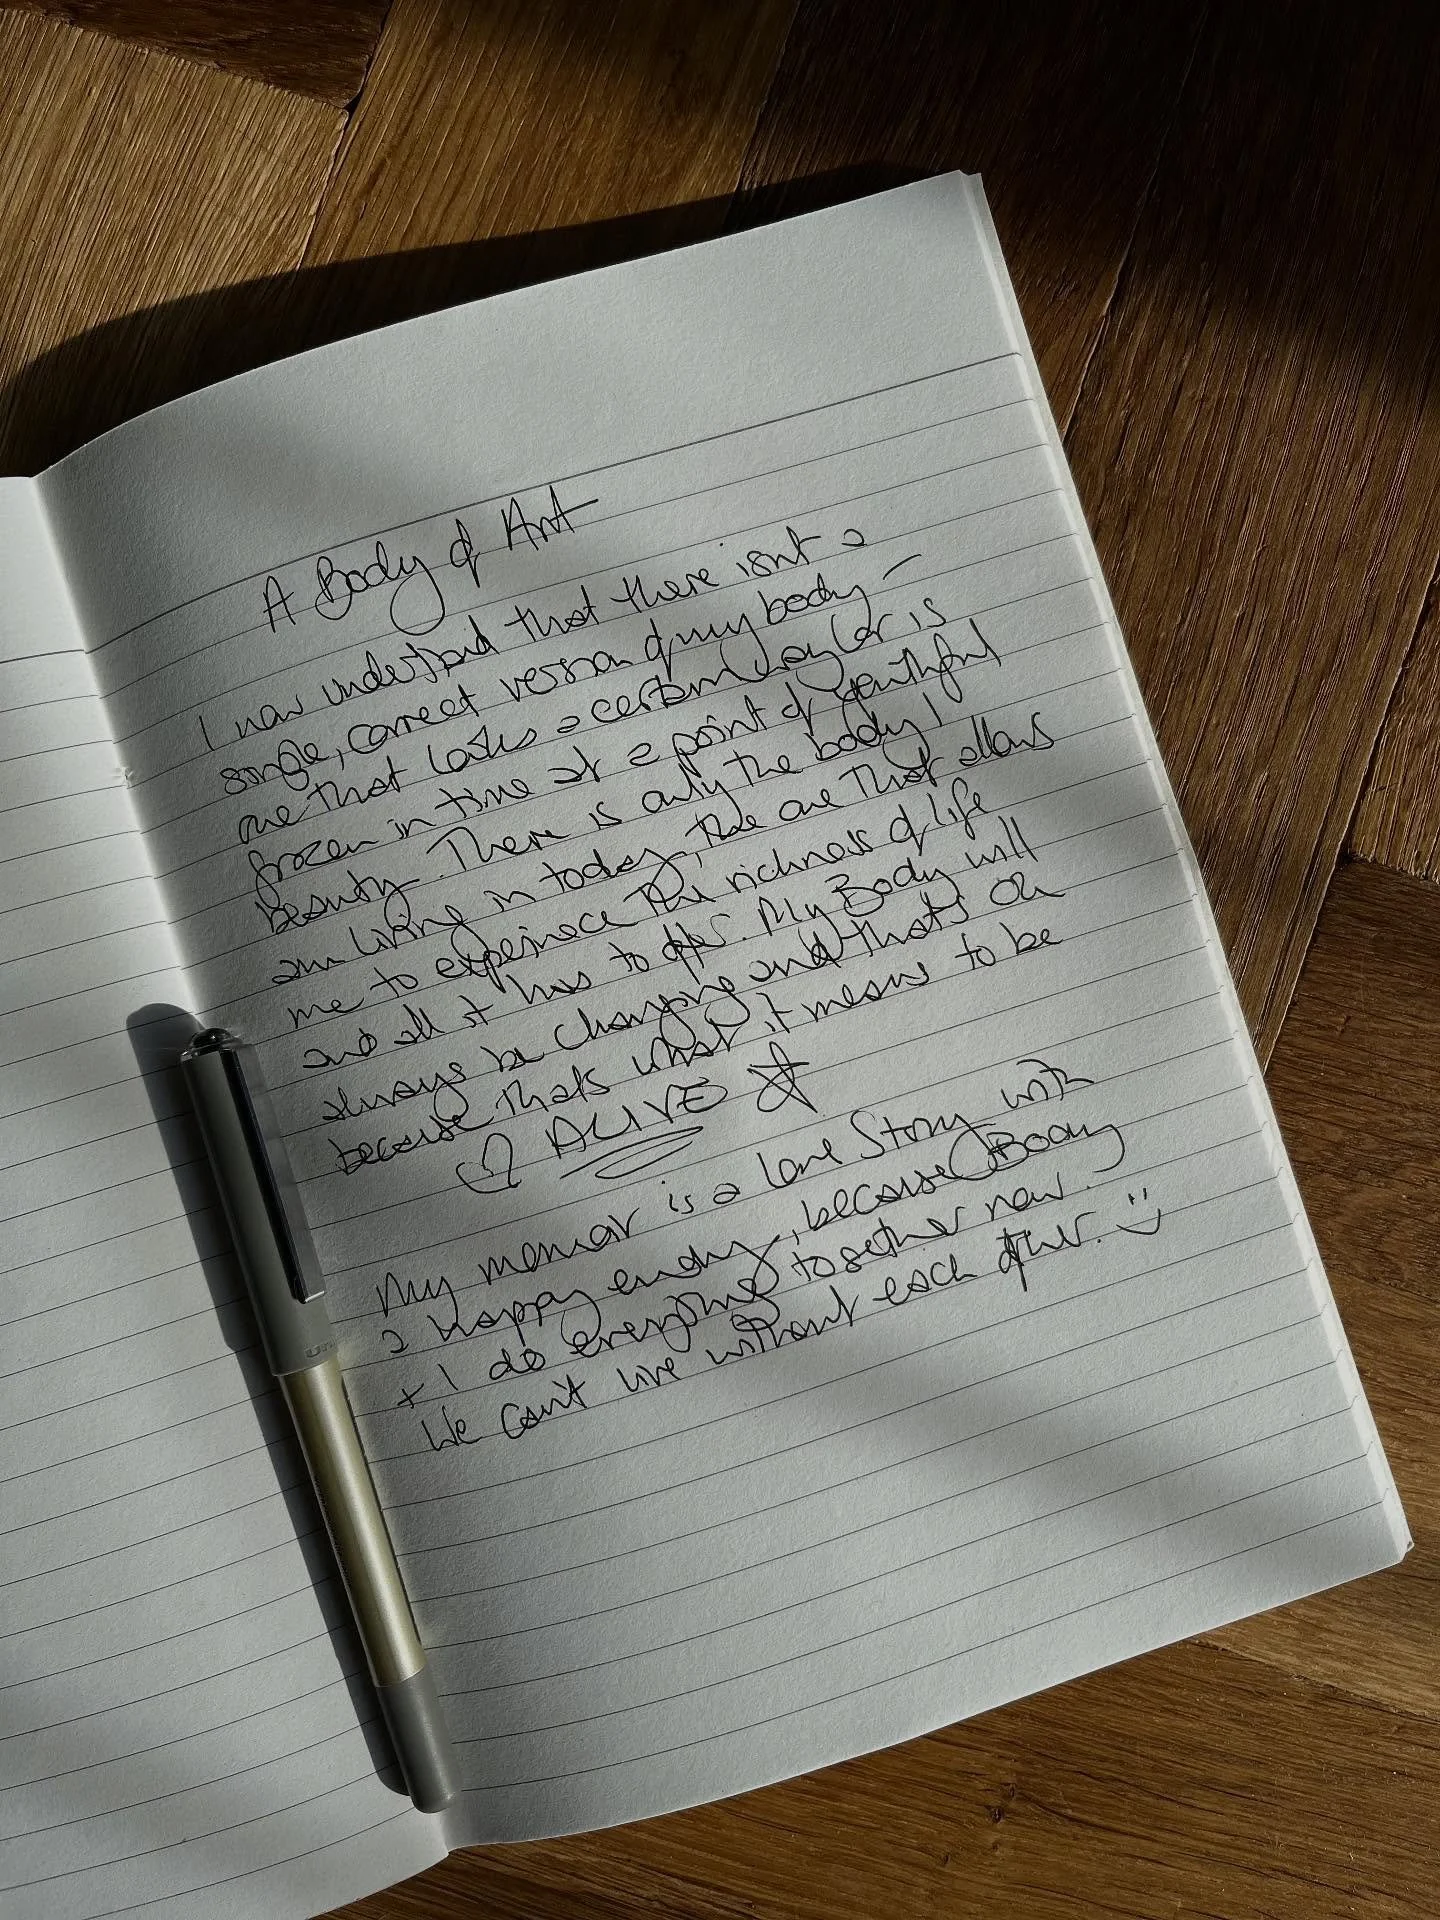 A Body of Art
I now understand that there isnt a
single, correct version of my body –
one that looks a certain way or is
frozen in time at a point of youthful
beauty. There is only the body I
am living in today, the one that allows
me to experience the richness of life
and all it has to offer. My Body will
always be changing and that's ok
because thats what it means to be
♡ ALIVE ☆
My memoir is a love Story with
a happy ending, because Body
+ I do everything together now.
We can't live without each other. :)
uni